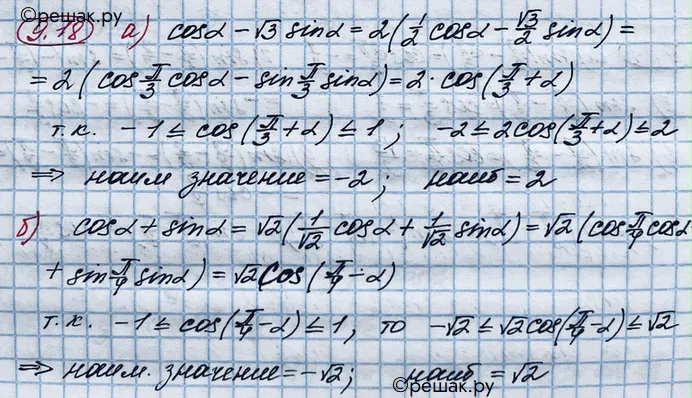 ©решак.ру
9.18 а) cosα − √3 sinα = 2(1/2 cosα − √3/2 sinα) =
= 2(cos π/3 cosα − sin π/3 sinα) = 2·cos(π/3 + α)
т.к. −1 ≤ cos(π/3 + α) ≤ 1; −2 ≤ 2cos(π/3 + α) ≤ 2
⇒ наим значение = −2; наиб = 2
б) cosα + sinα = √2(1/√2 cosα + 1/√2 sinα) = √2(cos π/4 cosα
+ sin π/4 sinα) = √2 cos(π/4 − α)
т.к. −1 ≤ cos(π/4 − α) ≤ 1, то −√2 ≤ √2cos(π/4 − α) ≤ √2
⇒ наим. значение = −√2; наиб = √2
©решак.ру